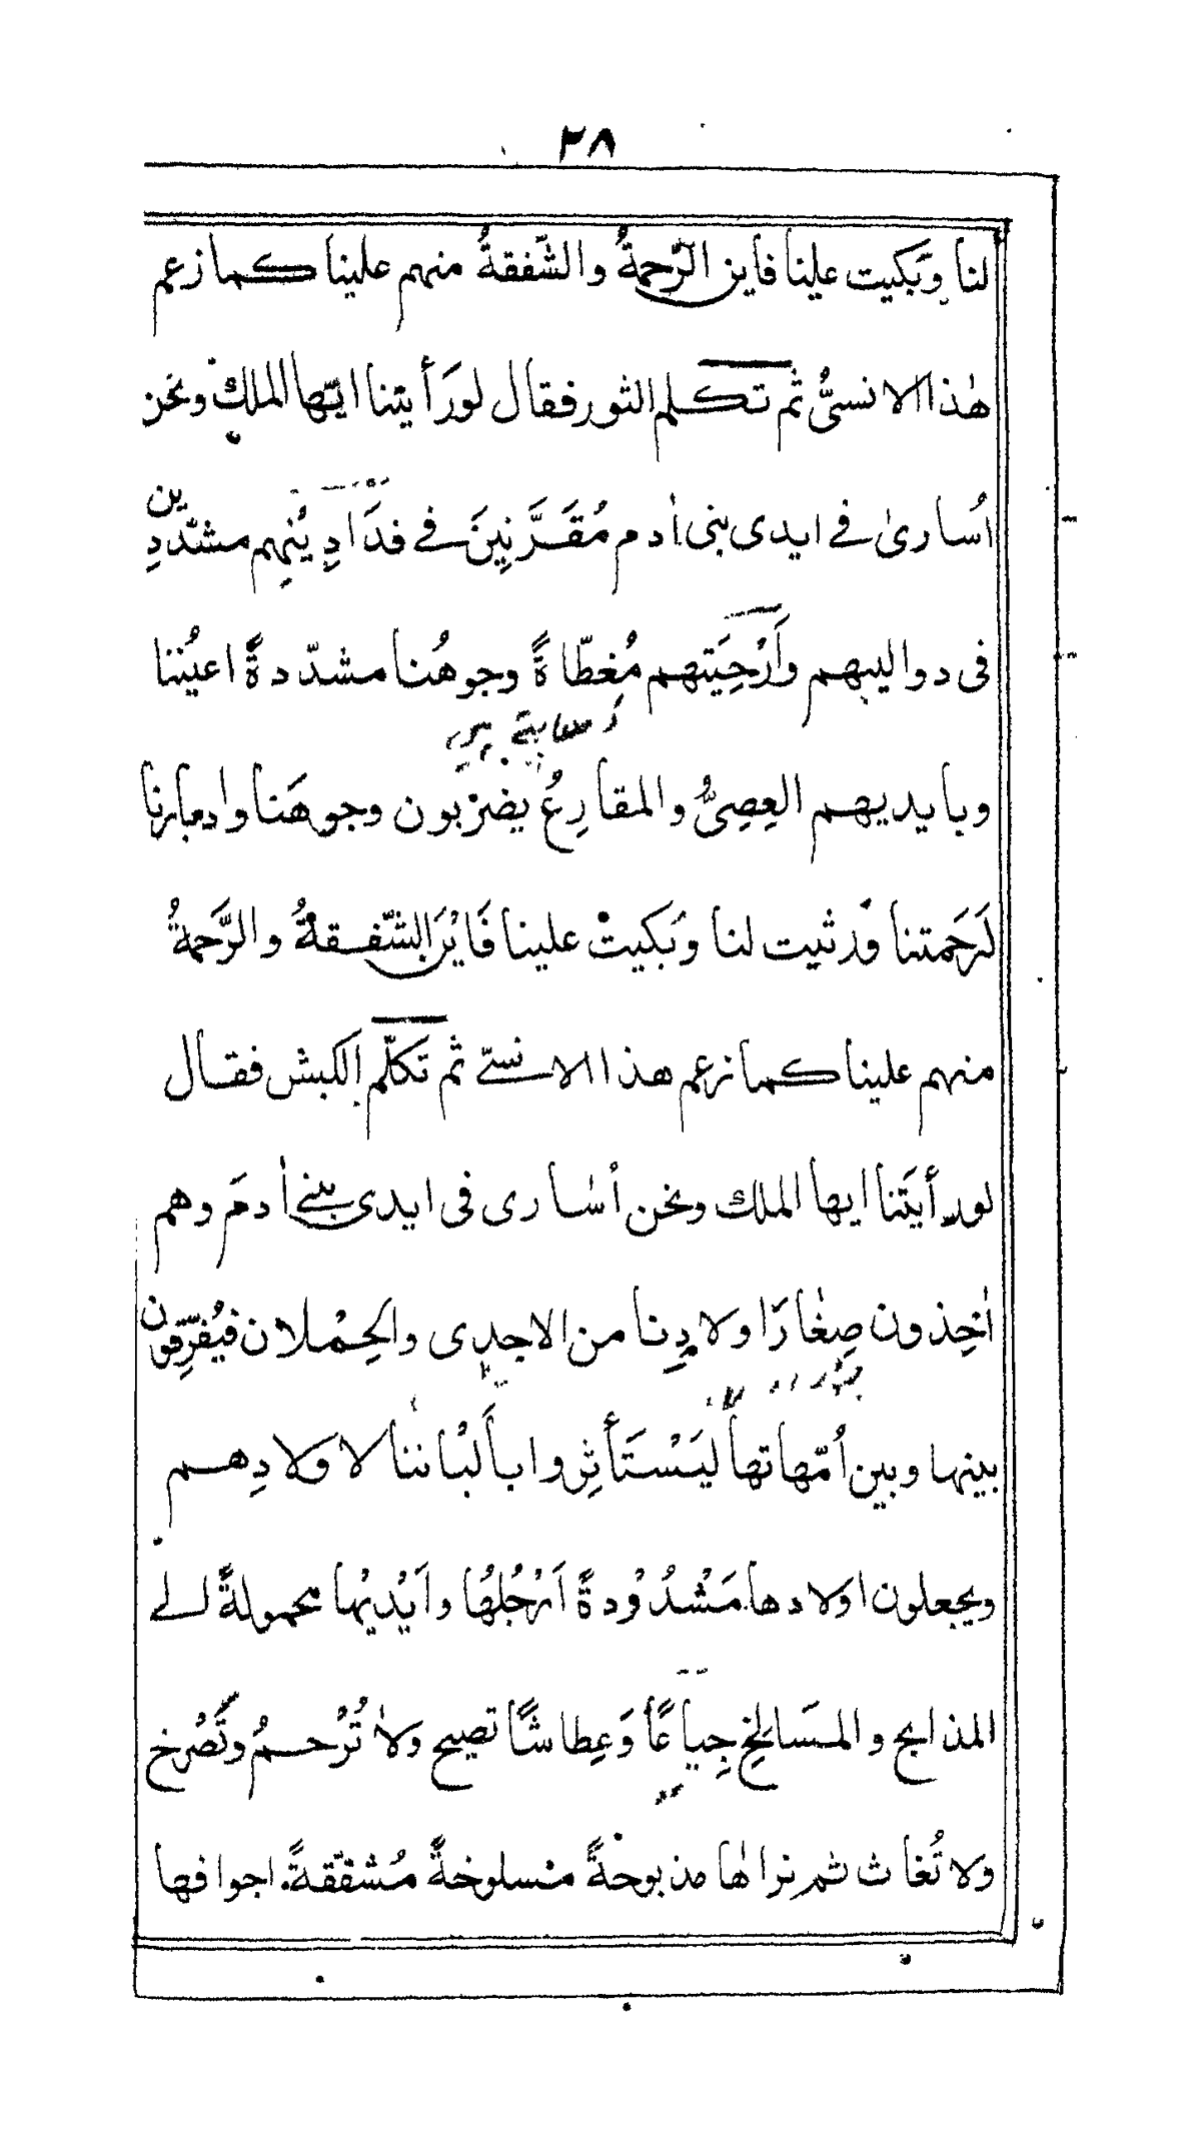 ٢٨
لنا وَبَكيت علينا فاين الرّحمةُ والشّفقةُ منهم علينا كما زعم
هٰذا الانسىُّ ثم تكلم الثور فقال لورَأيتنا ايّها الملك ونحن
اُسارىٰ فے ايدى بنى اٰدم مُقَرَّنِينَ فے فدَادِيُنِهم مشدّدِين
فى دواليبهم وَاَرْحِيَتهم مُغطّاةً وجوهُنا مشدّدةً اعيُننا
وبايديهم العِصِىُّ والمقارِعُ يضرْبون وجوهَنا وادبارنا
لَرَحَمتنا وَرثيت لنا وَبَكيتْ علينا فَايْنَ الشّفقةُ والرَّحمةُ
منهم علينا كما زعم هذا الانسےّ ثم تَكلّم الكبش فقال
لورأيَتنا ايها الملك ونحن اُسٰارى فى ايدى بنے اٰدمَ وهم
اٰخِذون صِغٰارَا ولادِنا من الاجدِى والحِمْلان فيُفرِّقون
بينها وبين اُمّهاتها ليَسْتَأثِروا بأَلبْاننا لاولادِهم
ويجعلون اولادها مَشْدُوْدةً اَرْجُلهُا واَيْديْها محمولةً الے
المذابح والمسَالخِ جِياعًا وَعِطاشًا تصيح ولا تُرْحمُ وتَصْرخ
ولا تُغاث ثم نراٰها مذبوحةً مسلوخةً مُشقّقةً اجوافها